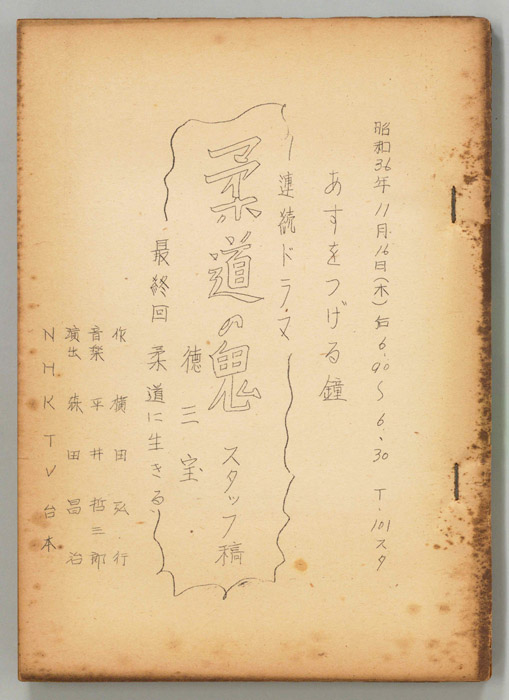 昭和36年11月16日(木)后6.00〜6.30 T-101スタ
あすをつげる鐘
―連続ドラマ
柔道の鬼 スタッフ稿
徳三宝
最終回 柔道に生きる
作 横田弘行
音楽 平井哲三郎
演出 森田昌治
NHKTV台本